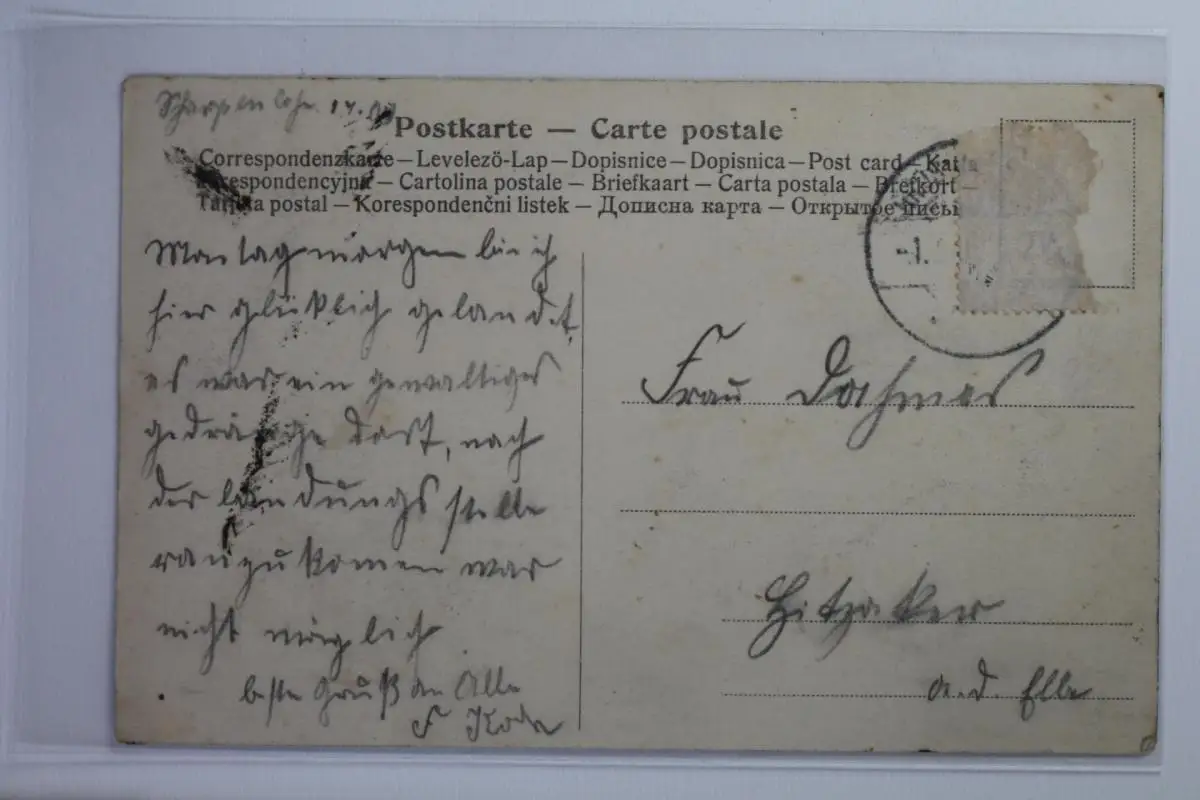 Postkarte — Carte postale
Correspondenzkarte — Levelező-Lap — Dopisnice — Dopisnica — Post card — Karta
korespondencyjna — Cartolina postale — Briefkaart — Carta postala — Brefkort —
Tarjeta postal — Korespondenčni listek — Дописна карта — Открытое письмо
Montagmorgen bin ich
hier glüklich gelandet
es war ein gewaltiges
gedränge dort, nach
der landungsstelle
ranzukomen war
nicht möglich
beste Gruß an Alle
F
-1.
Frau Dahms
Hitzaker
a. d. Elbe